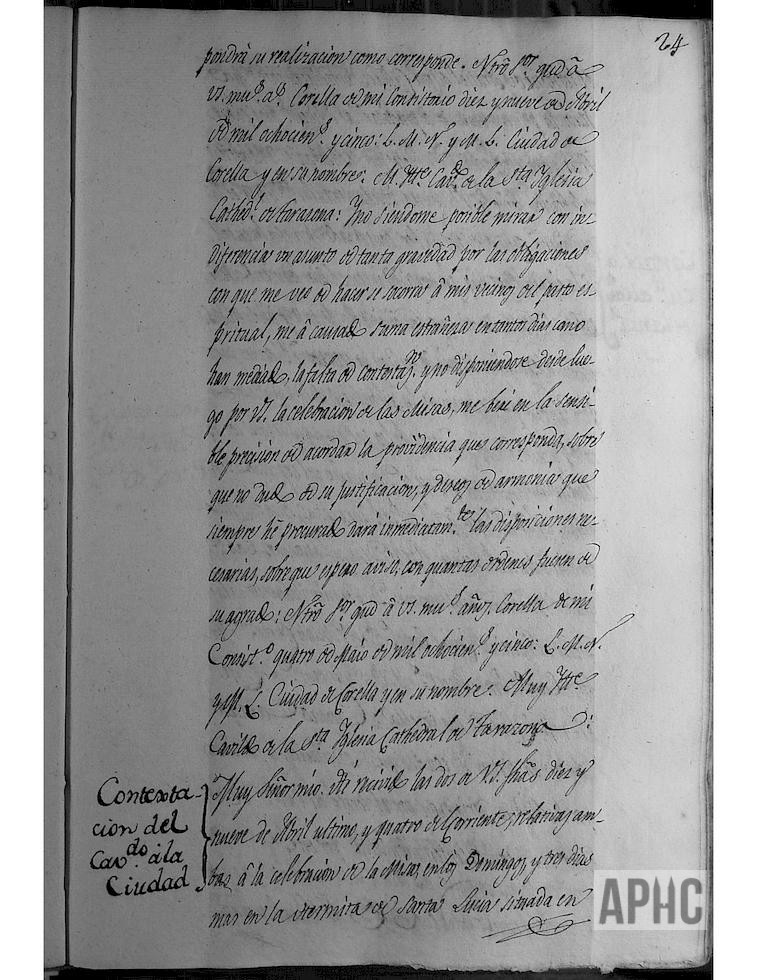 24
pondrá su realizacion como corresponde. Ntro Sor. gude. â
VS. mus. as. Corella de mi Consistorio diez y nueve de Abril
de mil ochociens. y cinco: L. M. N. y M. L. Ciudad de
Corella y en su nombre: M. Itte. Cavdo. de la Sta. Iglesia
Cathedl. de Tarazona: No siendome posible mirar con in-
diferencia un asunto de tanta gravedad por las obligaciones
con que me veo de hacer se socorra â mis vecinos del pasto es-
piritual, me â causado suma estrañeza en tantos dias como
han mediado, la falta de contestaon. y no disponiendose desde lue-
go por VS. la celebracion de las Misas, me veré en la sensi-
ble precision de acordar la providencia que corresponda, sobre
que no dudo de su justificacion, y deseos de armonia que
siempre hé procurado dará inmediatamte. las disposiciones ne-
cesarias, sobre que espero aviso, con quantas ordenes fueren de
su agrado: Ntrô Sor. gude. â VS. mus. años, Corella de mi
Consisto. quatro de Maio de mil ochociens. y cinco: L. M. N.
y M. L. Ciudad de Corella y en su nombre. Muy Itte.
Cavildo de la Sta. Iglesia Cathedral de Tarazona:
Contexta-
cion del
Cavdo. à la
Ciudad
Muy Señor mio. He recivido las dos de VS. fhâs diez y
nueve de Abril ultimo, y quatro del Corriente, relativas am-
bas â la celebracion de la Misa, en los Domingos, y tres dias
mas en la Hermita de Santa Lucia situada en
APHC